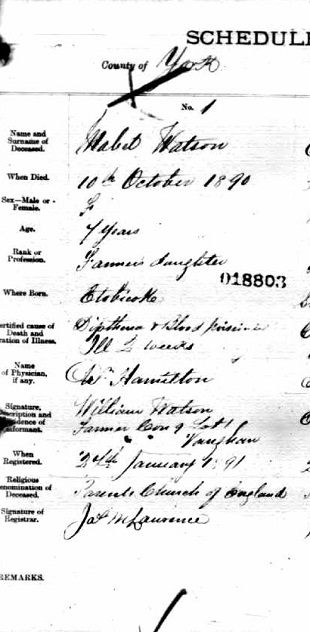 SCHEDUL
County of York
No. 1
Name and Surname of Deceased. Mabel Watson
When Died. 10th October 1890
Sex—Male or Female. F
Age. 7 years
Rank or Profession. Farmers daughter
018803
Where Born. Etobicoke
ertified cause of Death and ration of Illness. Dipthena & Blood
Ill 2 weeks
Name of Physician, if any. Hamilton
Signature, cription and idence of nformant. William Watson
Farmer Con 9 Lot 1
Vaughan
When Registered. 24th January 1891
Religious enomination of Deceased. Parents Church of England
Signature of Registrar. Jas McLawrence
REMARKS.